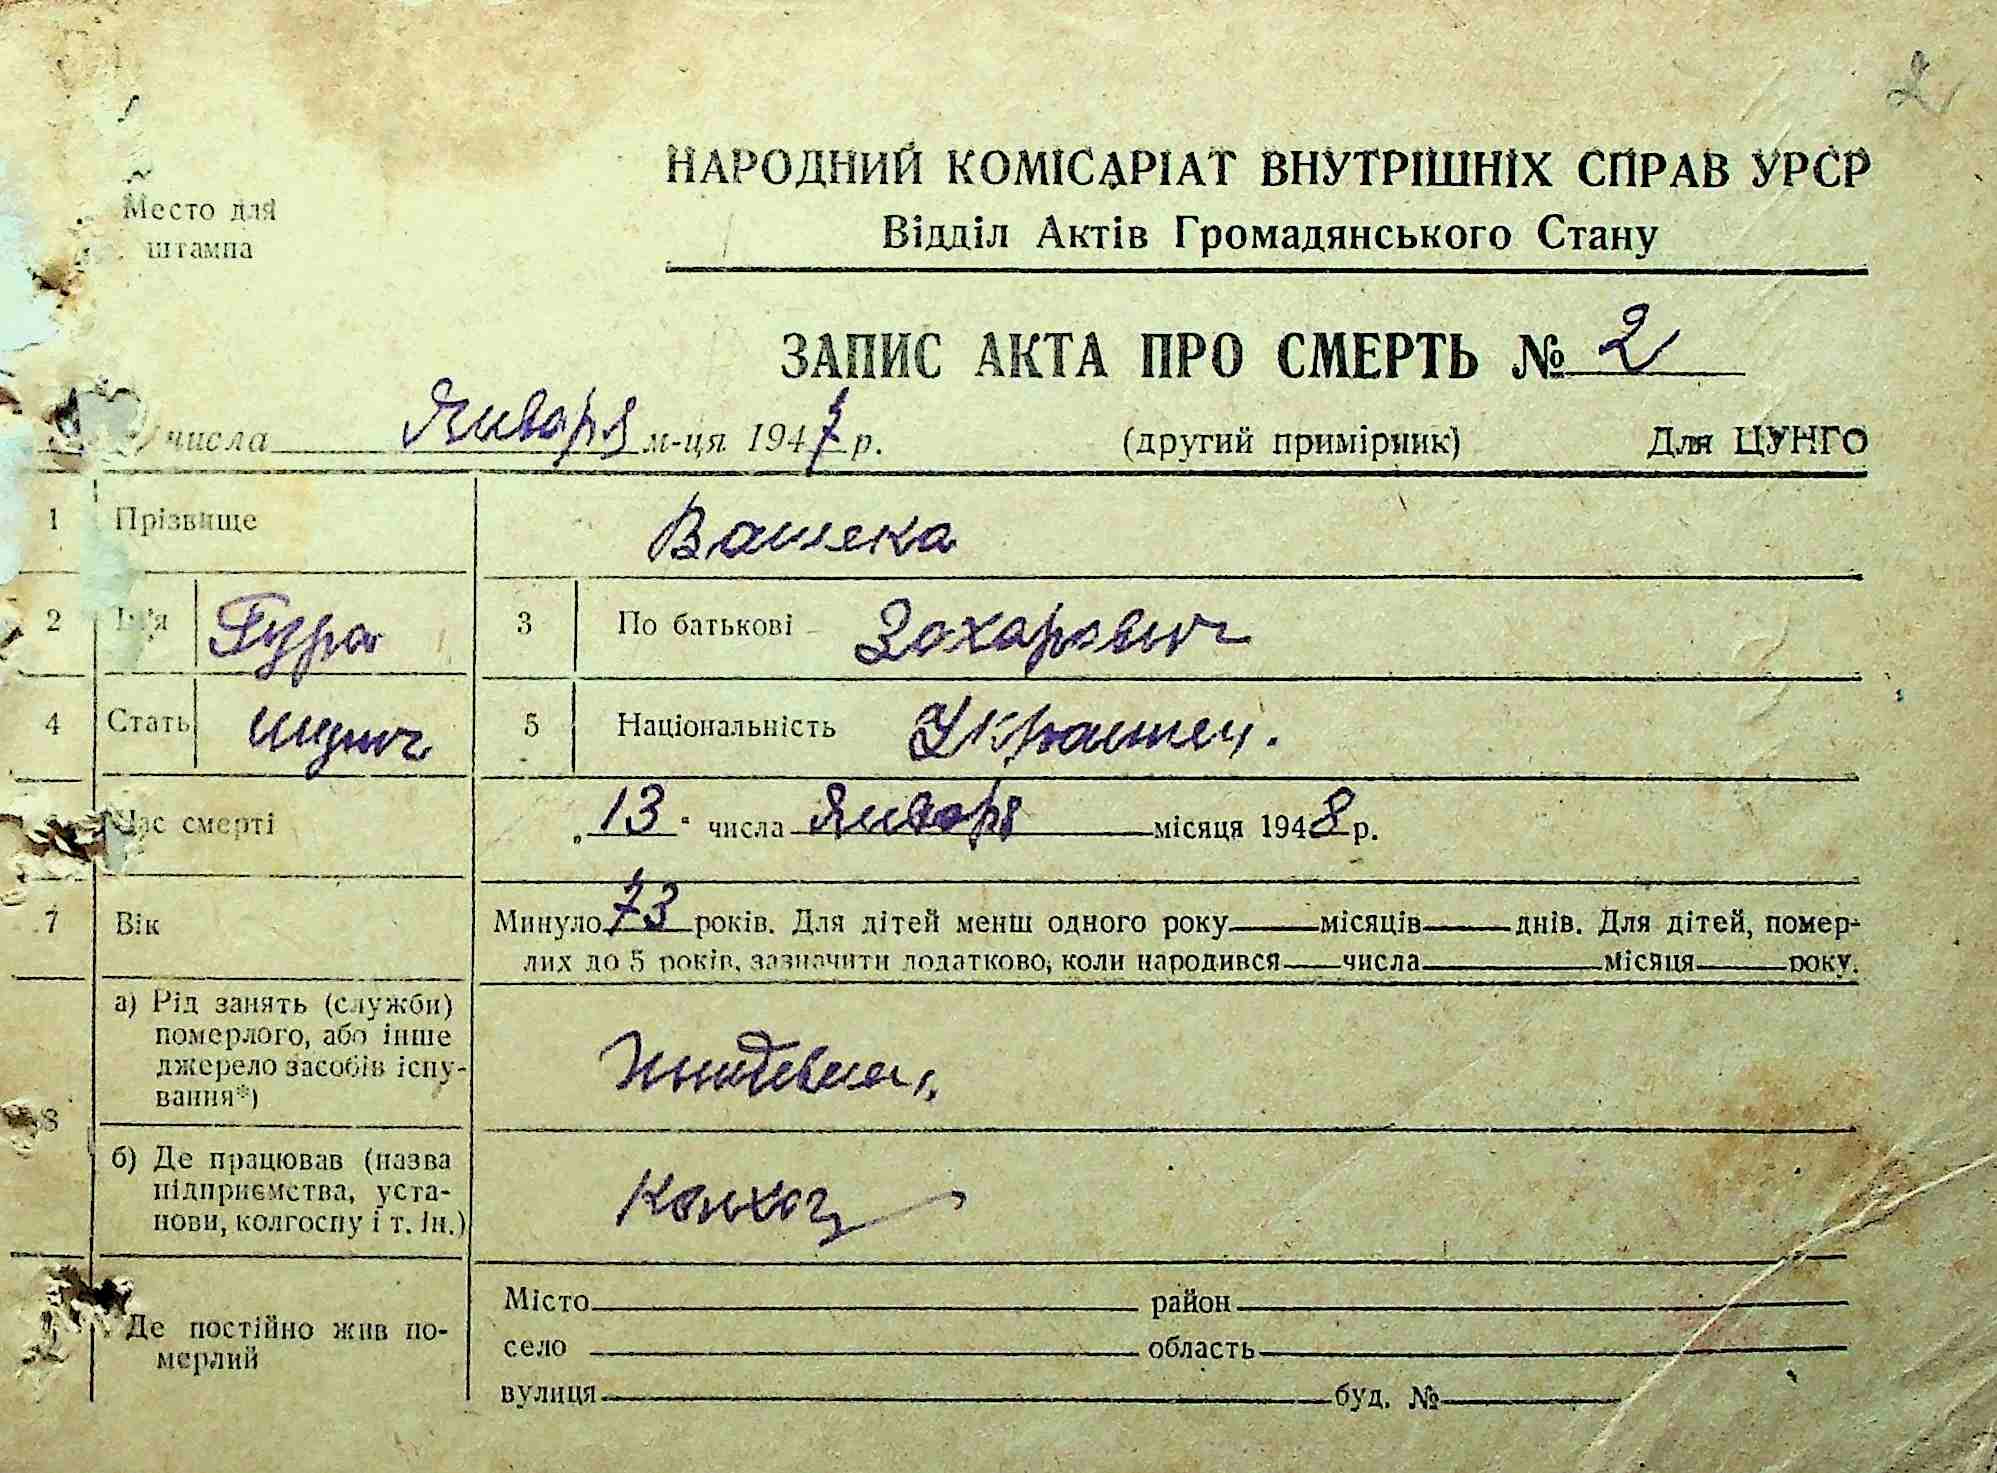 2
Место для
штампа
НАРОДНИЙ КОМІСАРІАТ ВНУТРІШНІХ СПРАВ УРСР
Відділ Актів Громадянського Стану
ЗАПИС АКТА ПРО СМЕРТЬ № 2
числа Января м-ця 1947 р. (другий примірник) Для ЦУНГО
1 Прізвище Вашека
2 Ім'я Гура 3 По батькові Захарович
4 Стать 5 Національність Украинец.
Час смерті „13" числа Января місяця 1948 р.
7 Вік Минуло 73 років. Для дітей менш одного року місяців днів. Для дітей, помер-
лих до 5 років, зазначити додатково, коли народився числа місяця року.
8 а) Рід занять (служби)
померлого, або інше
джерело засобів існу-
вання*)
б) Де працював (назва
підприємства, уста-
нови, колгоспу і т. ін.) Колхоз
Де постійно жив по-
мерлий
Місто район
село область
вулиця буд. №